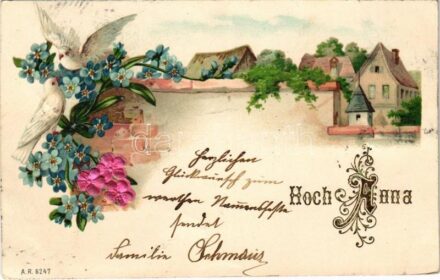 Herzlichen
Glückwunsch zum
werthen Namensfeste
sendet
Familie Schmaus
Hoch Anna
A.R. 6247